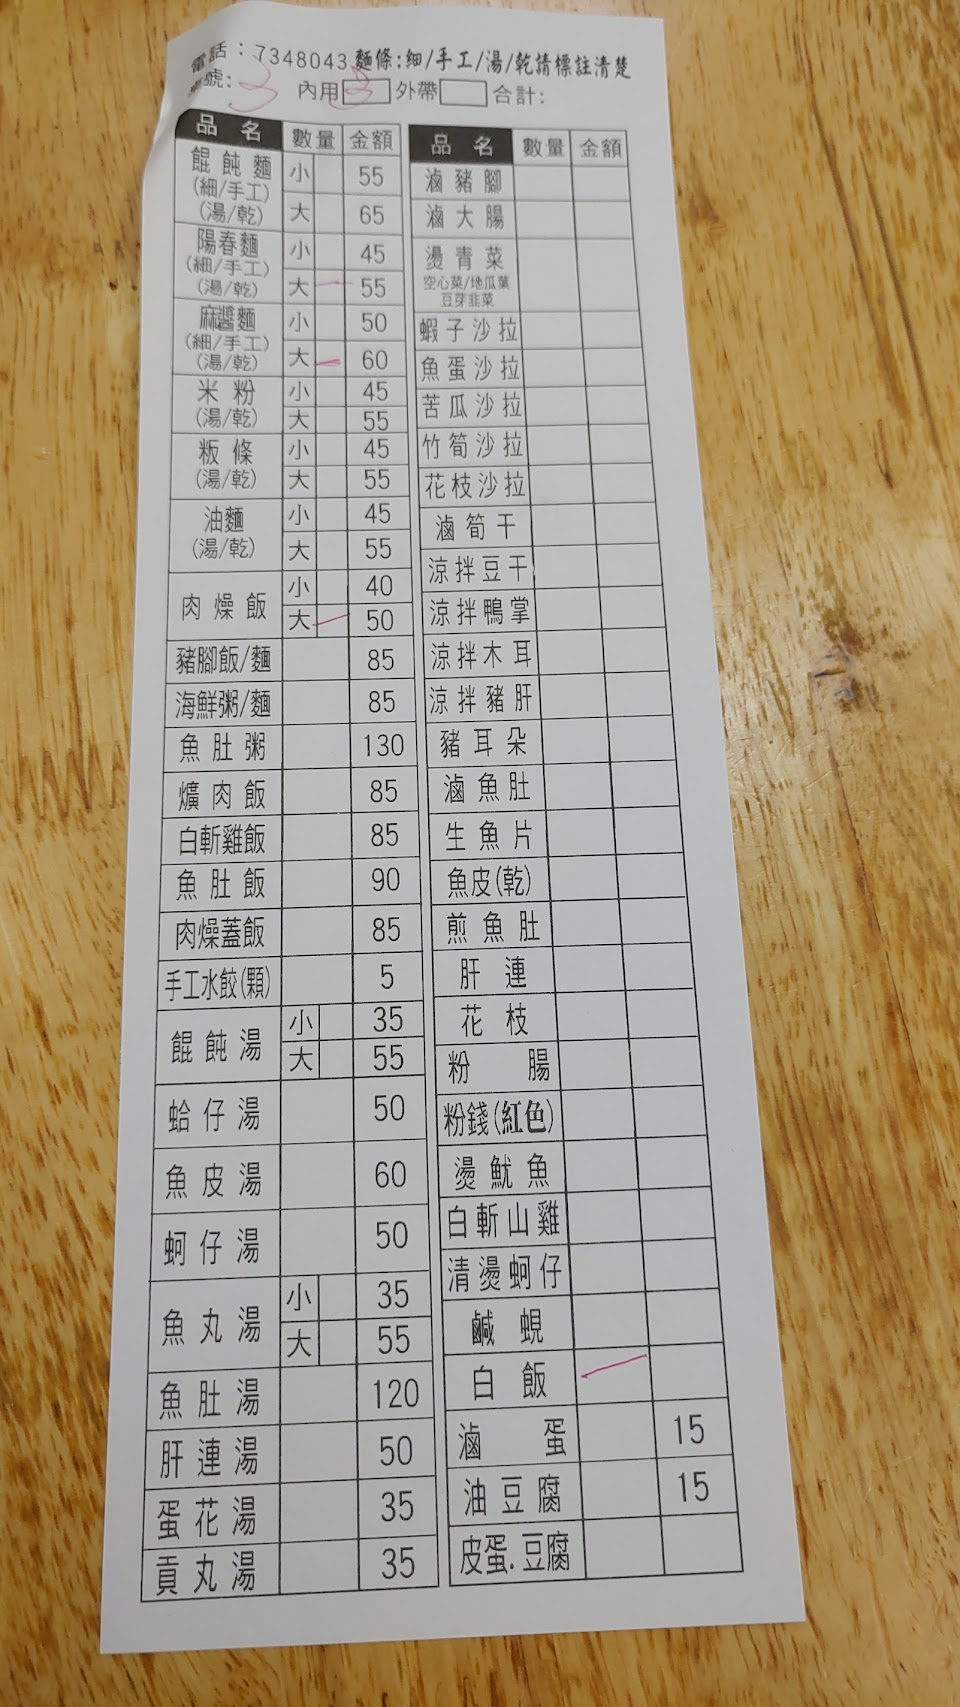 電話：7348043 麵條:細/手工/湯/乾請標註清楚
號: 3 內用 外帶 合計:
品名 數量 金額
餛飩麵 小 55
(細/手工)
(湯/乾) 大 65
陽春麵 小 45
(細/手工)
(湯/乾) 大 55
麻醬麵 小 50
(細/手工)
(湯/乾) 大 60
米粉 小 45
(湯/乾) 大 55
粄條 小 45
(湯/乾) 大 55
油麵 小 45
(湯/乾) 大 55
肉燥飯 小 40
大 50
豬腳飯/麵 85
海鮮粥/麵 85
魚肚粥 130
爌肉飯 85
白斬雞飯 85
魚肚飯 90
肉燥蓋飯 85
手工水餃(顆) 5
餛飩湯 小 35
大 55
蛤仔湯 50
魚皮湯 60
蚵仔湯 50
魚丸湯 小 35
大 55
魚肚湯 120
肝連湯 50
蛋花湯 35
貢丸湯 35
品名 數量 金額
滷豬腳
滷大腸
燙青菜
空心菜/地瓜葉
豆芽韭菜
蝦子沙拉
魚蛋沙拉
苦瓜沙拉
竹筍沙拉
花枝沙拉
滷筍干
涼拌豆干
涼拌鴨掌
涼拌木耳
涼拌豬肝
豬耳朵
滷魚肚
生魚片
魚皮(乾)
煎魚肚
肝連
花枝
粉腸
粉錢(紅色)
燙魷魚
白斬山雞
清燙蚵仔
鹹蜆
白飯
滷蛋 15
油豆腐 15
皮蛋.豆腐